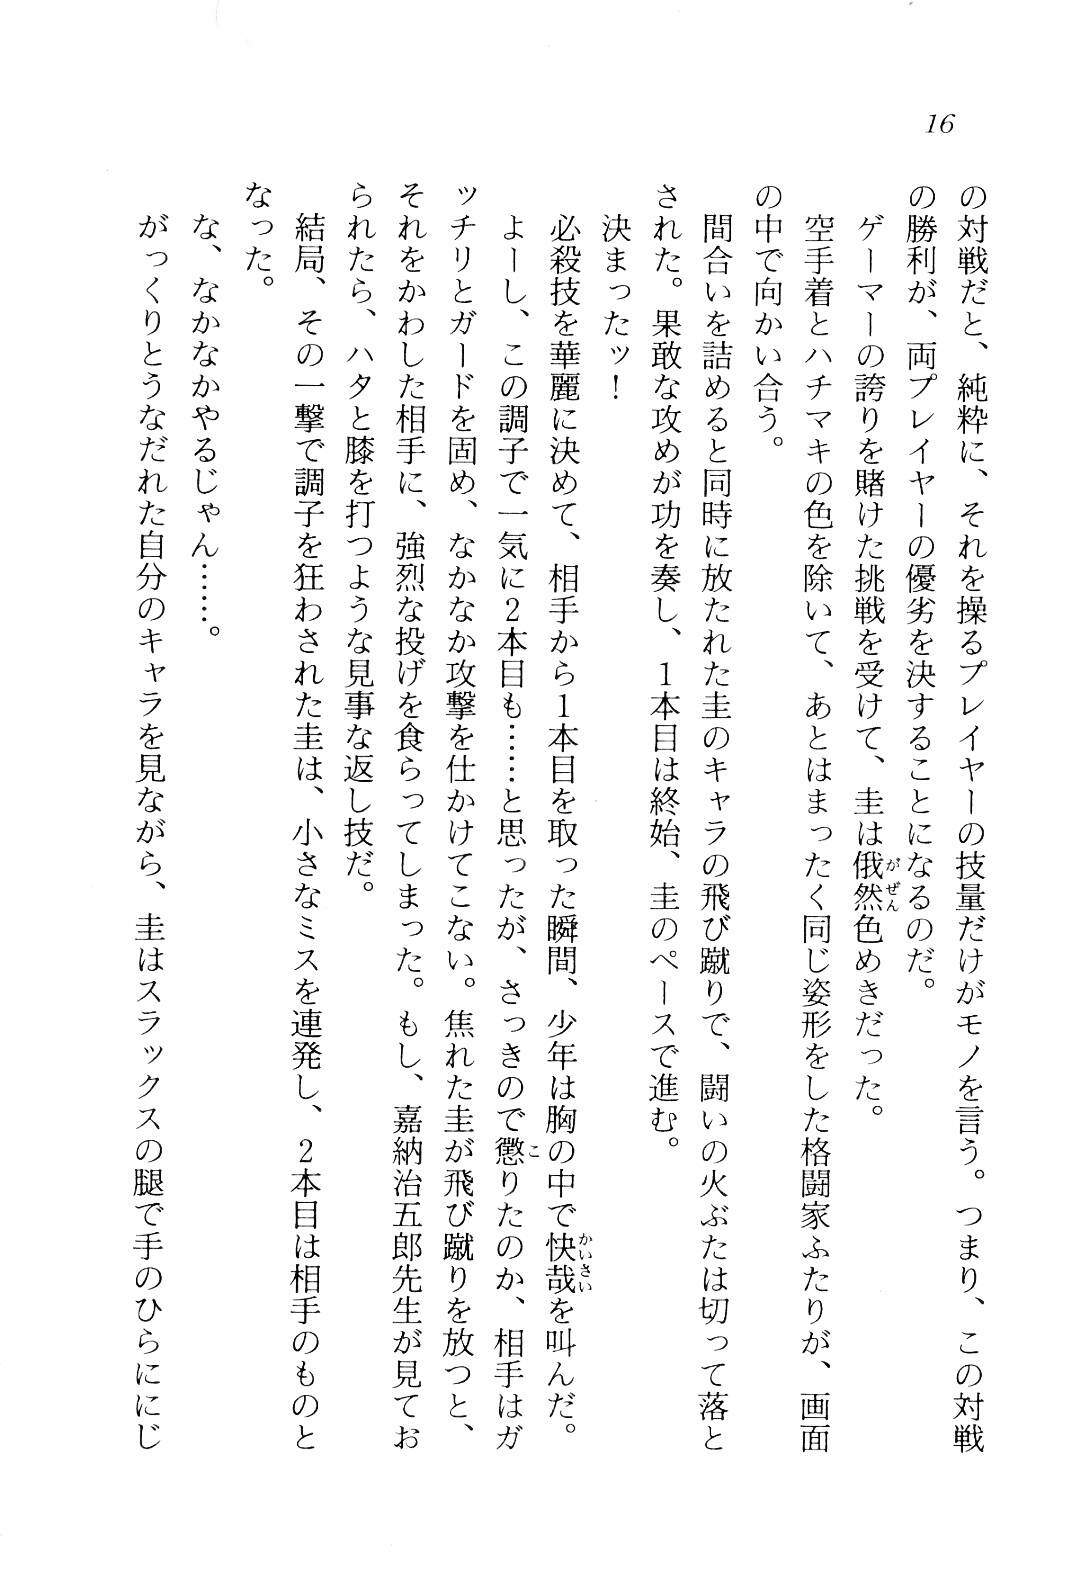 16
の対戦だと、純粋に、それを操るプレイヤーの技量だけがモノを言う。つまり、この対戦
の勝利が、両プレイヤーの優劣を決することになるのだ。
ゲーマーの誇りを賭けた挑戦を受けて、圭は俄然色めきだった。
がぜん
空手着とハチマキの色を除いて、あとはまったく同じ姿形をした格闘家ふたりが、画面
の中で向かい合う。
間合いを詰めると同時に放たれた圭のキャラの飛び蹴りで、闘いの火ぶたは切って落と
された。果敢な攻めが功を奏し、1本目は終始、圭のペースで進む。
決まったッ！
必殺技を華麗に決めて、相手から1本目を取った瞬間、少年は胸の中で快哉を叫んだ。
かいさい
よーし、この調子で一気に2本目も……と思ったが、さっきので懲りたのか、相手はガ
こ
ッチリとガードを固め、なかなか攻撃を仕かけてこない。焦れた圭が飛び蹴りを放つと、
それをかわした相手に、強烈な投げを食らってしまった。もし、嘉納治五郎先生が見てお
られたら、ハタと膝を打つような見事な返し技だ。
結局、その一撃で調子を狂わされた圭は、小さなミスを連発し、2本目は相手のものと
なった。
な、なかなかやるじゃん……。
がっくりとうなだれた自分のキャラを見ながら、圭はスラックスの腿で手のひらににじ